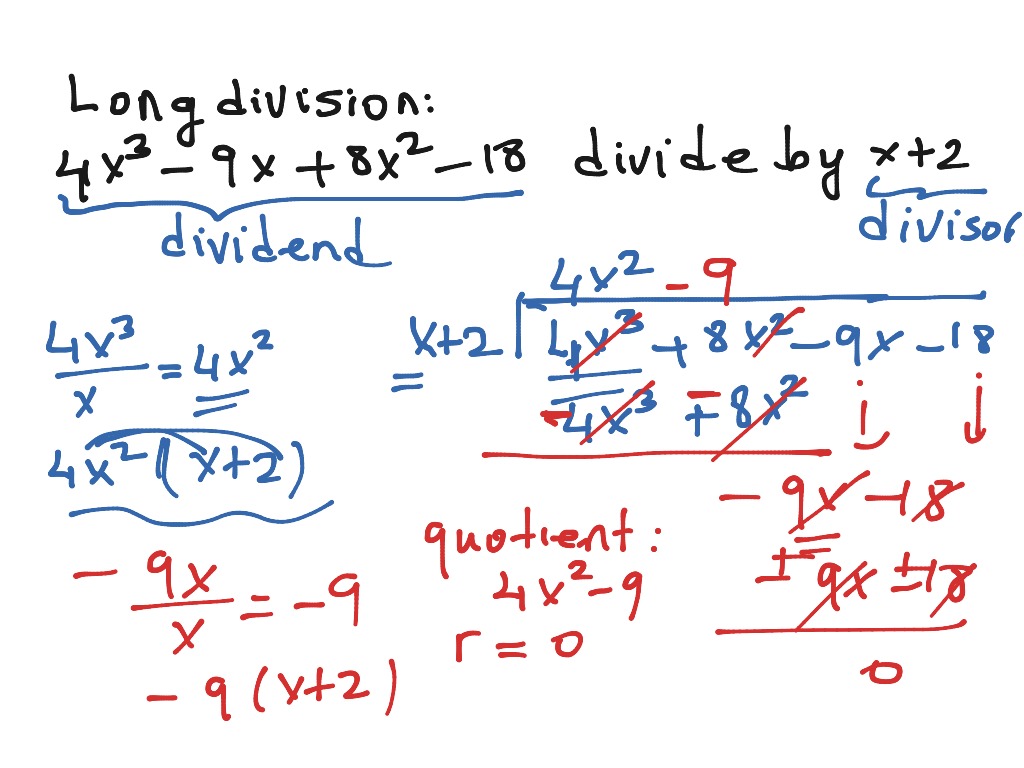 Long division:
4x³ - 9x + 8x² - 18 divide by x+2
dividend
divisor
4x² - 9
x+2 4x³ + 8x² - 9x - 18
=
-4x³ ∓ 8x²
4x³/x = 4x²
4x²(x+2)
-9x - 18
± 9x ± 18
0
-9x/x = -9
-9(x+2)
quotient:
4x² - 9
r = 0